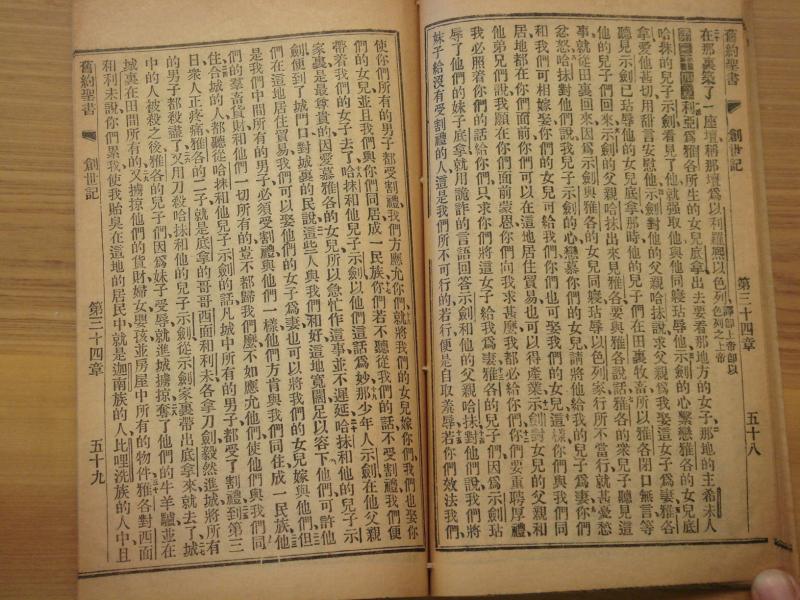 舊約聖書 創世記 第三十四章 五十八
在那裏築了一座壇稱那壇爲以利羅熙以色列譯卽上帝卽以色列之上帝
利亞爲雅各所生的女兒底拿出去要看那地方的女子那地的主希未人
哈抹的兒子示劍看見了他就强取他與他同寢玷辱他示劍的心繫戀雅各的女兒底
拿愛他甚切用甜言安慰他示劍對他的父親哈抹說求父親爲我娶這女子爲妻雅各
聽見示劍已玷辱他的女兒底拿那時他的兒子們在田裏牧畜所以雅各閉口無言等
他的兒子們回來示劍的父親哈抹出來見雅各要與雅各說話雅各的衆兒子聽見這
事就從田裏回來因爲示劍與雅各的女兒同寢玷辱以色列家行所不當行就甚憂愁
忿怒哈抹對他們說我兒子示劍的心戀慕你們的女兒請將他給我的兒子爲妻你們
和我們可相嫁娶你們的女兒可給我們你們也可娶我們的女兒這樣你們與我們同
居地都在你們面前你們可以在這地居住貿易也可以得產業示劍對女兒的父親和
他弟兄們說我願在你們面前蒙恩你們向我求甚麼我都必給你們你們要重聘厚禮
我必照着你們的話給你們只求你們將這女子給我爲妻雅各的兒子們因爲示劍玷
辱了他們的妹子底拿就用詭詐的言語回答示劍和他的父親哈抹對他們說我們將
妹子給沒有受割禮的人這是我們所不可行的若行便是自取羞辱若你們效法我們
使你們所有的男子都受割禮我們方應允你們就將我們的女兒嫁你們我們也娶你
們的女兒並且我們與你們同居成一民族你們若不聽從我們的話不受割禮我們便
帶着我們的女子去了哈抹和他兒子示劍以他們這話爲妙那少年人示劍在他父親
家裏是最尊貴的因愛慕雅各的女兒所以急忙作這事並不遲延哈抹和他的兒子示
劍便到了城門口對城裏的民說這些人與我們和好這地寬闊足以容下他們可許他
們在這地居住貿易我們可以娶他們的女子爲妻也可以將我們的女兒嫁與他們但
是我們中間所有的男子必須受割禮與他們一樣他們方肯與我們同住成一民族他
們的羣畜貨財和他們一切所有的豈不都歸我們麼不如應允他們使他們與我們同
住合城的人都聽從哈抹和他兒子示劍的話凡城中所有的男子都受了割禮到第三
日衆人正疼痛雅各的二子就是底拿的哥哥西面和利未各拿刀劍毅然進城將所有
的男子都殺盡了又用刀殺哈抹和他的兒子示劍從示劍家裏帶出底拿來就去了城
中的人被殺之後雅各的兒子們因爲妹子受辱就進城擄掠奪了他們的牛羊驢並在
城裏在田間所有的又擄掠他們的貨財婦女嬰孩並房屋中所有的物件雅各對西面
和利未說你們累我使我貽臭在這地的居民中就是迦南族的人比哩洗族的人中且
舊約聖書 創世記 第三十四章 五十九